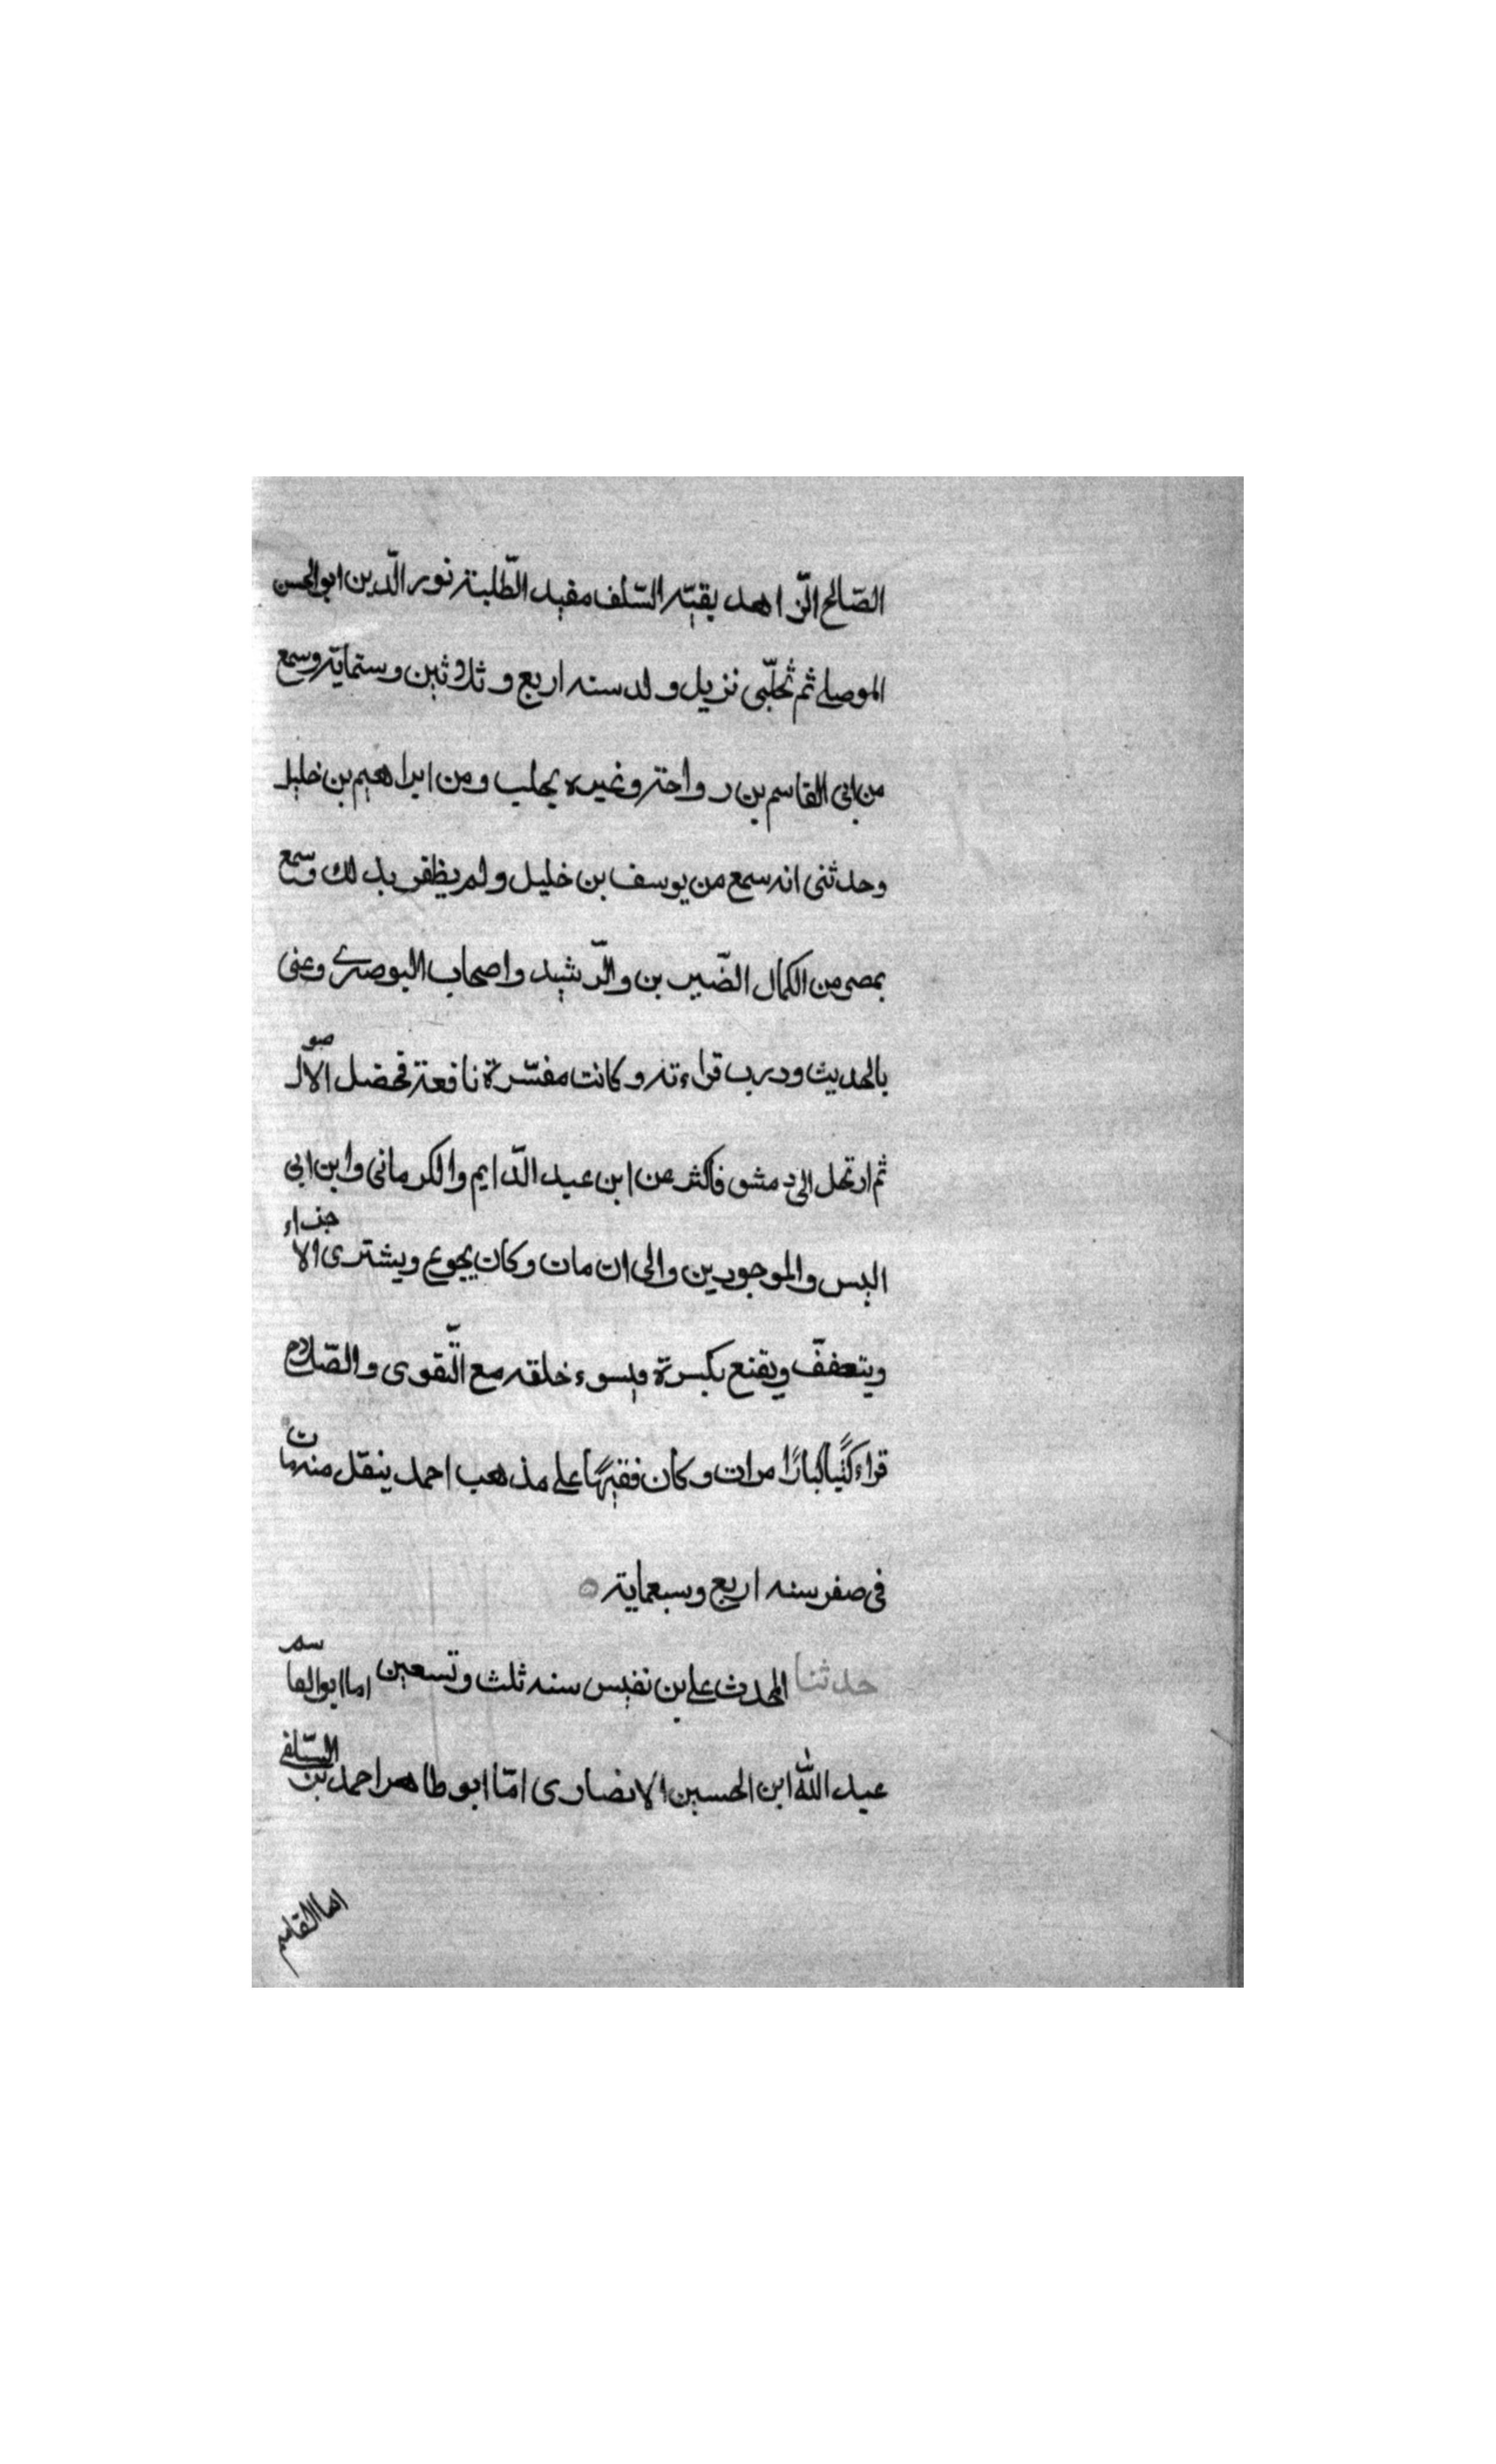 الصّالح الزّاهد بقيّة السّلف مفيد الطّلبة نور الدّين ابو الحسن
الموصلي ثم ثحلّبى نزيل ولد سنه اربع وثلاثين وستماية وسمع
من ابى القاسم بن رواحة وغيره بحلب ومن ابراهيم بن خليل
وحدثنى انه سمع من يوسف بن خليل ولم يظفر بذلك وسمع
بمصر من الكمال الضّير بن والرّشيد واصحاب البوصرى وعنى
بالحديث ودرب قراءته وكانت مفسّرة نافعة فحصل الاصول
ثم ارتحل الى دمشق فاكثر عن ابن عبد الدّايم والكرمانى وابن ابى
اليس والموجودين والى ان مات وكان يجوع ويشترى الاجزاء
ويتعفف ويقنع بكسرة ويسوء خلقه مع التّقوى والصّلاح
قراء كتبًا كبارًا مرات وكان فقيهًا على مذهب احمد ينقل منه مات
فى صفر سنه اربع وسبعماية
حدثنا المحدث على بن نفيس سنه ثلث وتسعين اما ابو القاسم
عبد الله ابن الحسين الانصارى امّا ابو طاهر احمد بن السّلفى
اما القاسم